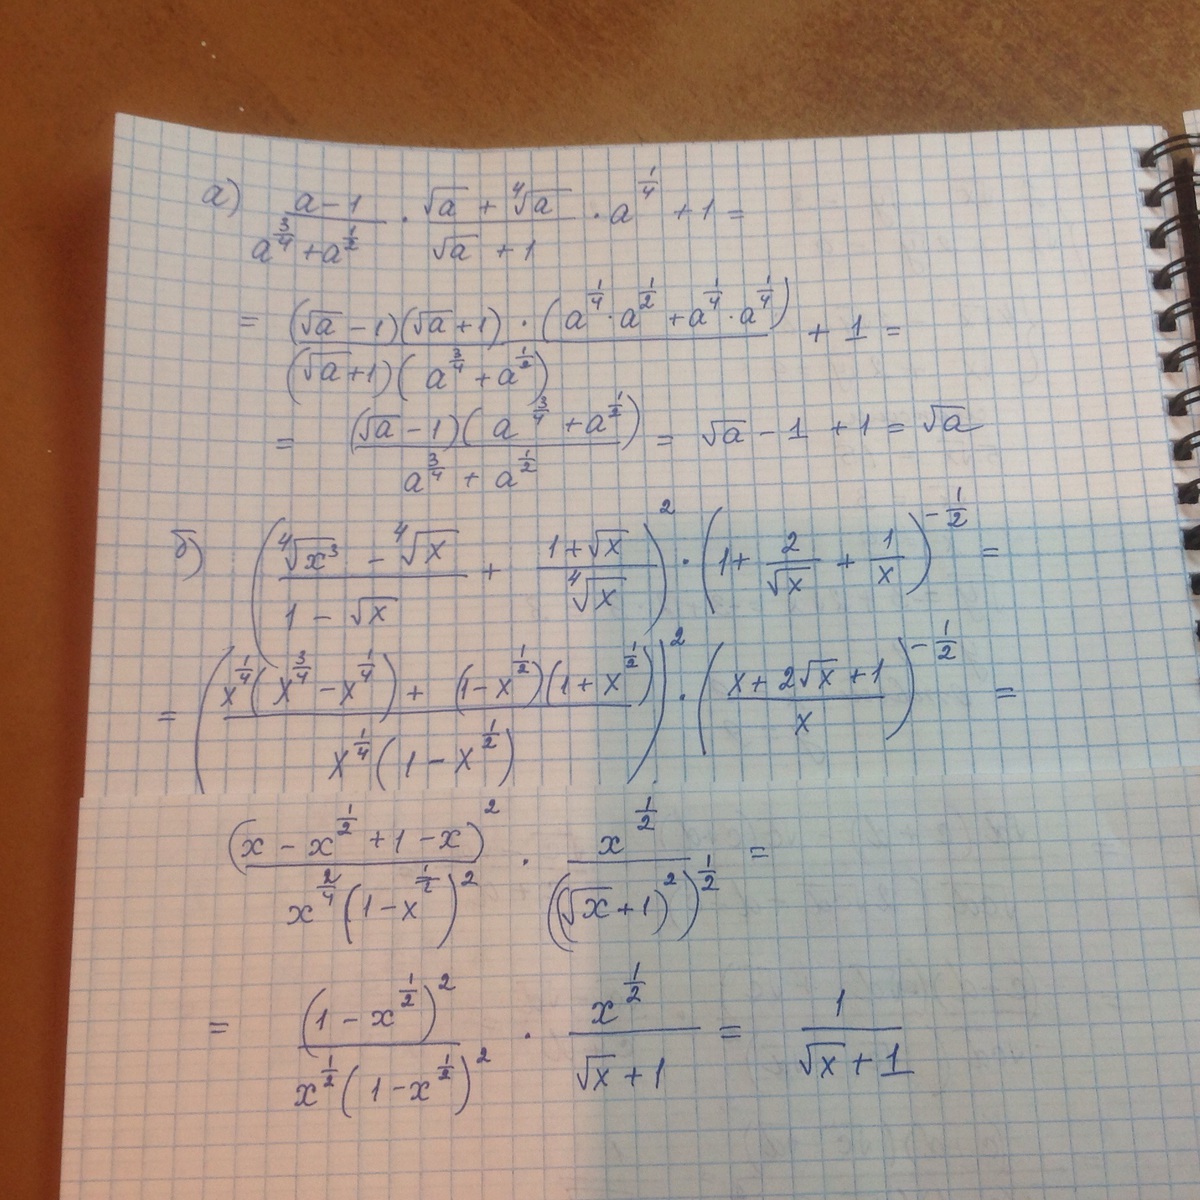 а) (a-1)/(a^(3/4) + a^(1/2)) · (√a + ⁴√a)/(√a + 1) · a^(1/4) + 1 =
= ((√a - 1)(√a + 1) · (a^(1/4) · a^(1/2) + a^(1/4) · a^(1/4)))/((√a + 1)(a^(3/4) + a^(1/2))) + 1 =
= ((√a - 1)(a^(3/4) + a^(1/2)))/(a^(3/4) + a^(1/2)) = √a - 1 + 1 = √a
б) ((⁴√x³ - ⁴√x)/(1 - √x) + (1 + √x)/⁴√x)² · (1 + 2/√x + 1/x)^(-1/2) =
= ((x^(1/4)(x^(3/4) - x^(1/4)) + (1 - x^(1/2))(1 + x^(1/2)))/(x^(1/4)(1 - x^(1/2))))² · ((x + 2√x + 1)/x)^(-1/2) =
(x - x^(1/2) + 1 - x)²/(x^(2/4)(1 - x^(1/2))²) · x^(1/2)/((√x + 1)²)^(1/2) =
= (1 - x^(1/2))²/(x^(1/2)(1 - x^(1/2))²) · x^(1/2)/(√x + 1) = 1/(√x + 1)